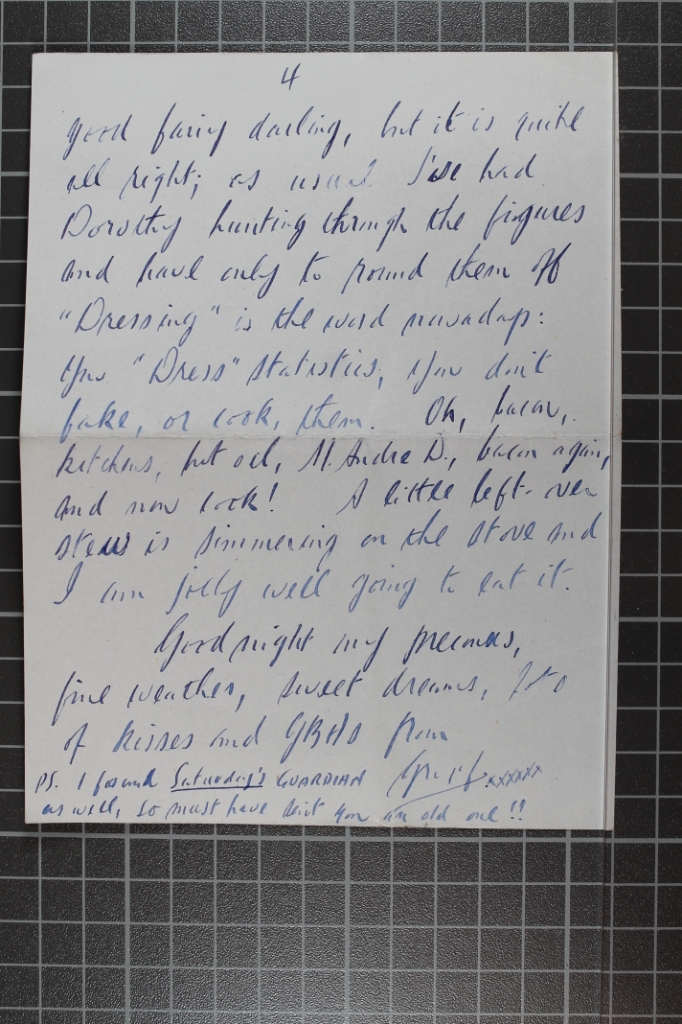 4
good fairy darling, but it is quite
all right; as usual I've had
Dorothy hunting through the figures
and have only to round them off
"Dressing" is the word nowadays:
You "Dress" statistics, you don't
fake, or cook, them. Oh, bacon,
kitchens, hot oil, M. Andre D., bacon again,
and now cook! A little left-over
stew is simmering on the stove and
I am jolly well going to eat it.
Goodnight my precious,
fine weather, sweet dreams, lots
of kisses and GBHs from
xxxxxx
PS. I found Saturday's GUARDIAN
as well, so must have sent you an old one!!